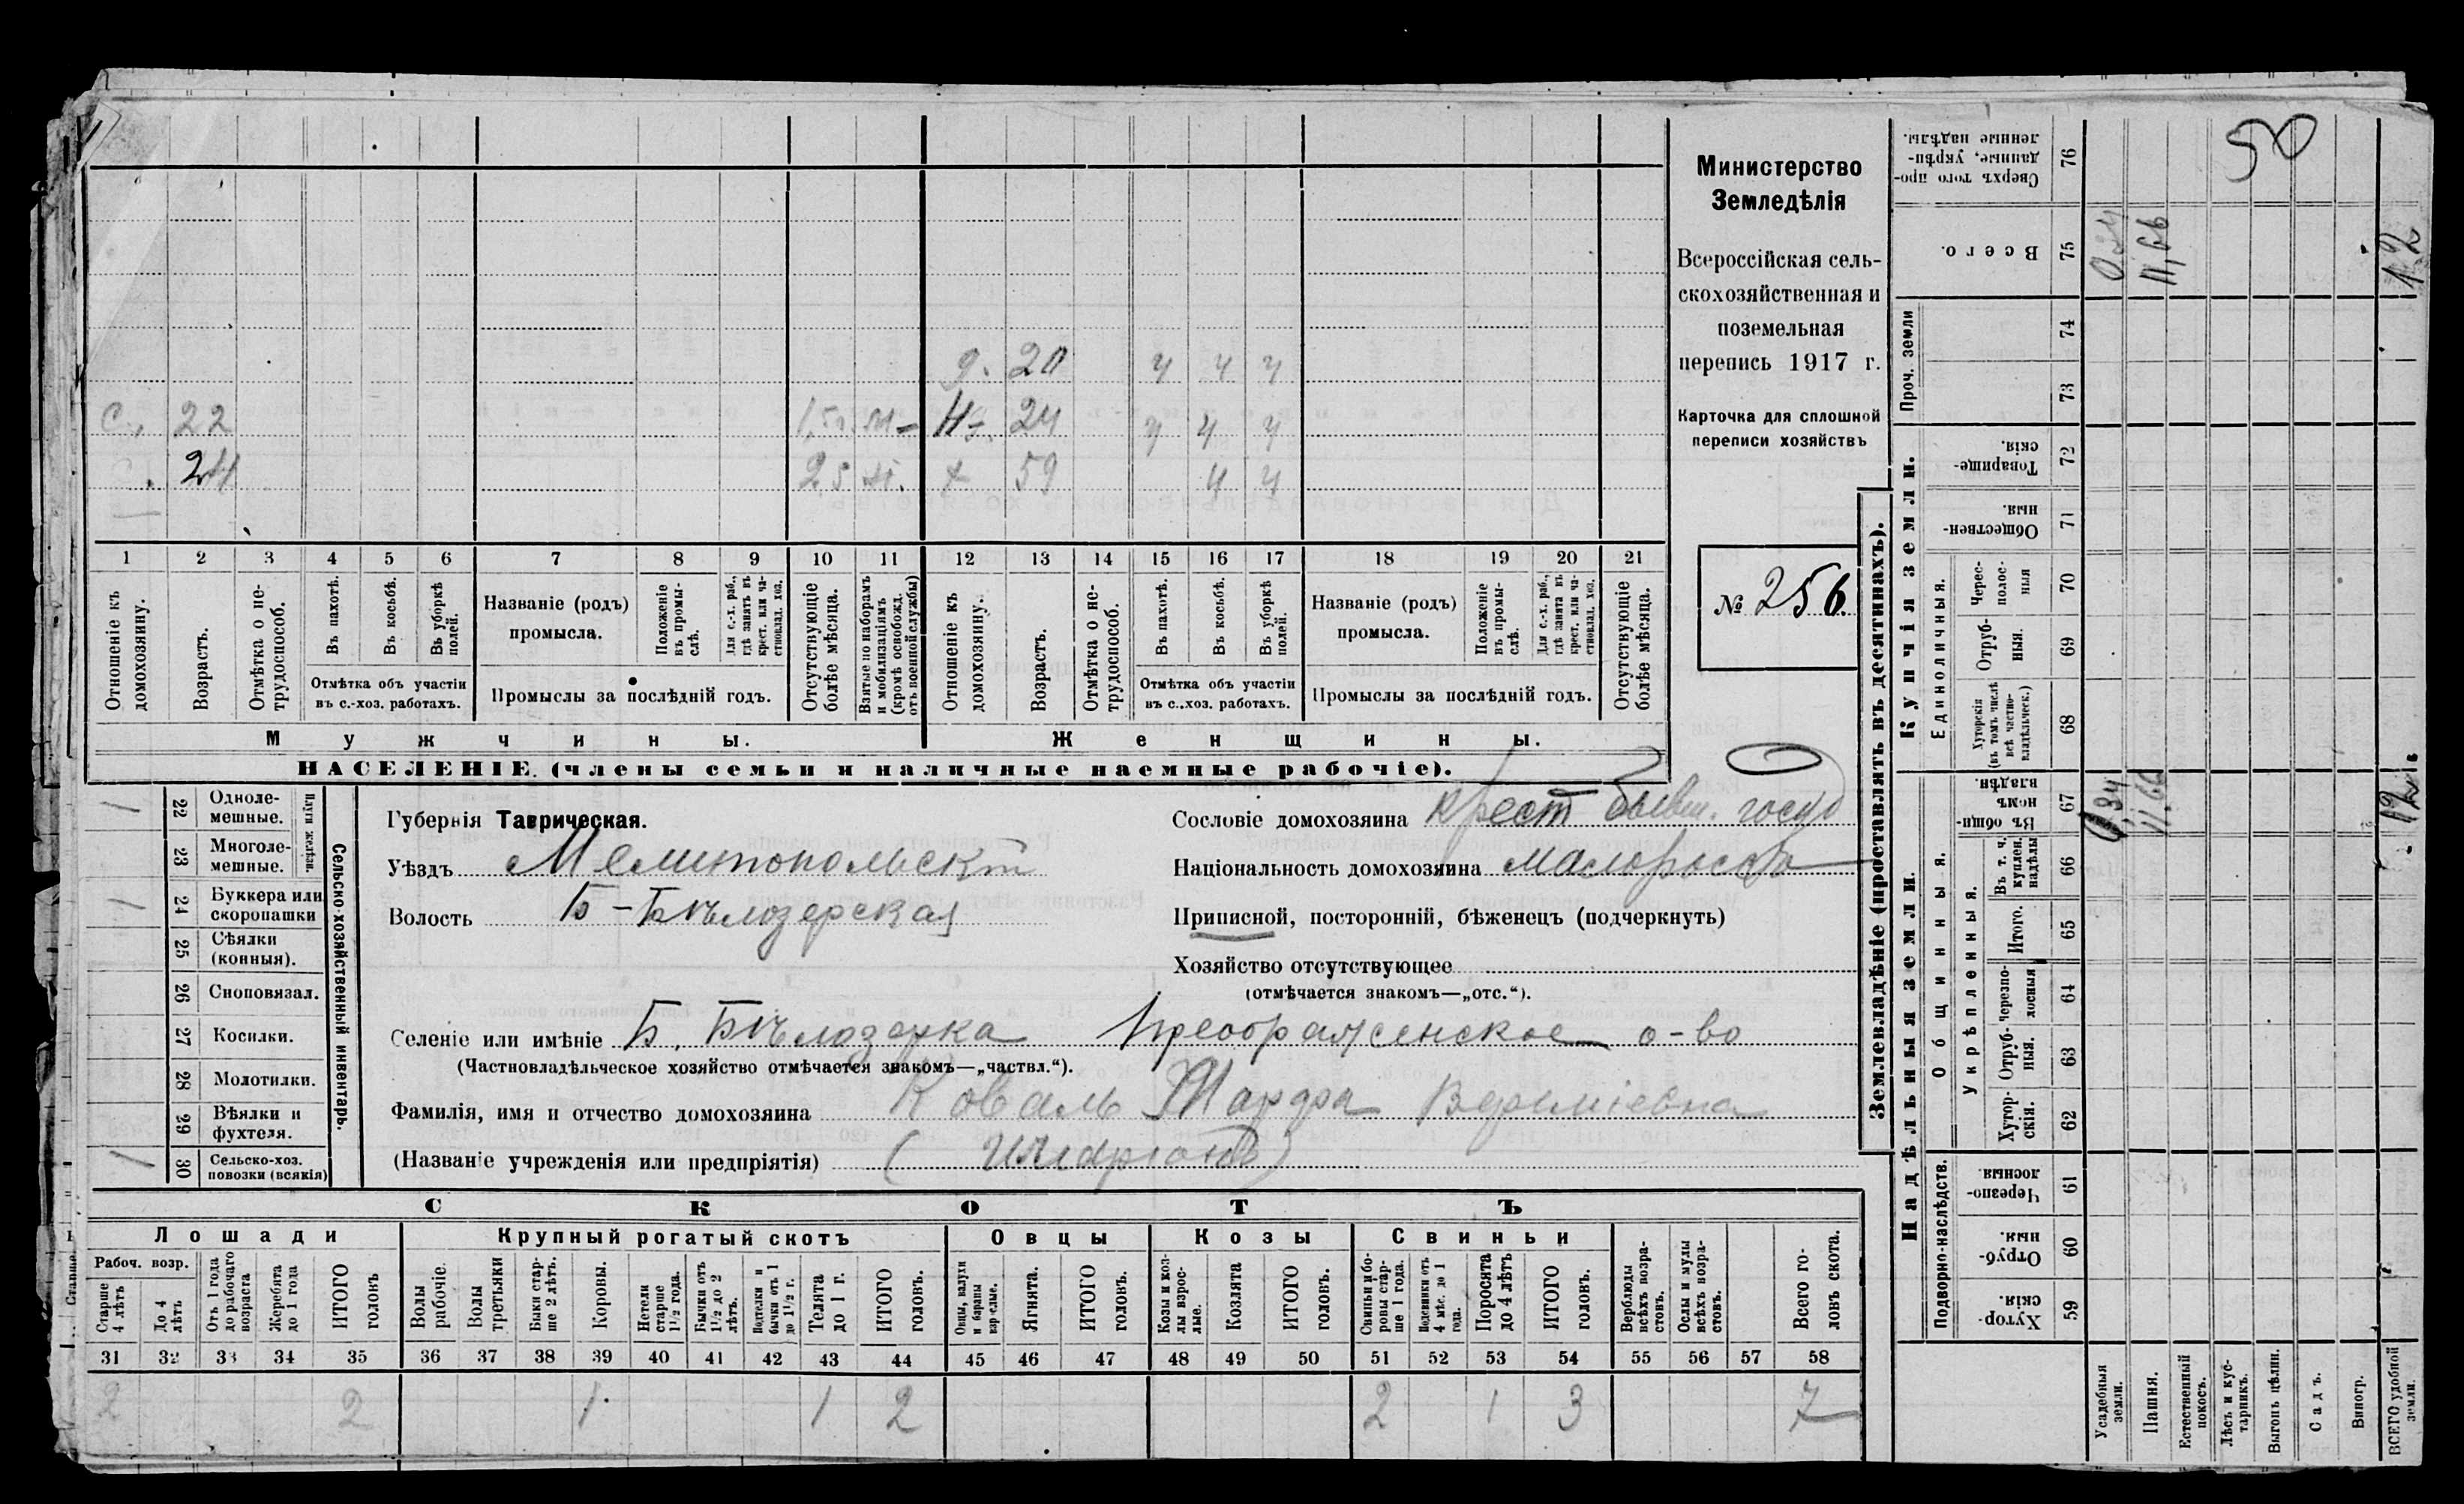 50
Министерство
Земледѣлія
Всероссійская сель-
скохозяйственная и
поземельная
перепись 1917 г.
Карточка для сплошной
переписи хозяйствъ
№ 256.
д. 20 ч ч ч
с. 22 1,5 г. м - Н-. 24 ч ч ч
24 2,5 м. х 59 ч ч
1 2 3 4 5 6 7 8 9 10 11 12 13 14 15 16 17 18 19 20 21
Отношеніе къ домохозяину.
Возрастъ.
Отмѣтка о не-трудоспособ.
Въ пахотѣ.
Въ косьбѣ.
Въ уборкѣ полей.
Отмѣтка объ участіи
въ с.-хоз. работахъ.
Названіе (родъ)
промысла.
Положеніе въ промы-слѣ.
Для с.-х. раб., гдѣ занятъ въ крест. или ча-стновлад. хоз.
Промыслы за послѣдній годъ.
Отсутствующіе болѣе мѣсяца.
Взятые по наборамъ и мобилизаціямъ (кромѣ освобожд. отъ военной службы)
Отношеніе къ домохозяину.
Возрастъ.
Отмѣтка о не-трудоспособ.
Въ пахотѣ.
Въ косьбѣ.
Въ уборкѣ полей.
Отмѣтка объ участіи
въ с.-хоз. работахъ.
Названіе (родъ)
промысла.
Положеніе въ промы-слѣ.
Для с.-х. раб., гдѣ занята въ крест. или ча-стновлад. хоз.
Промыслы за послѣдній годъ.
Отсутствующіе болѣе мѣсяца.
Мужчины. Женщины.
НАСЕЛЕНІЕ. (члены семьи и наличные наемные рабочіе).
Сельско-хозяйственный инвентарь.
Плуги желѣзн.
/ 22 Одноле-мешные.
23 Многоле-мешные.
/ 24 Буккера или скоропашки
25 Сѣялки (конныя).
26 Сноповязал.
27 Косилки.
28 Молотилки.
29 Вѣялки и фухтеля.
/ 30 Сельско-хоз. повозки (всякія)
Губернія Таврическая.
Уѣздъ Мелитопольскій
Волость Б-Бѣлозерская
Сословіе домохозяина крест бывш. госуд
Національность домохозяина малороссъ
Приписной, посторонній, бѣженецъ (подчеркнуть)
Хозяйство отсутствующее
(отмѣчается знакомъ—„отс.“).
Селеніе или имѣніе Б. Бѣлозерка Преображенское о-во
(Частновладѣльческое хозяйство отмѣчается знакомъ—„частвл.“).
Фамилія, имя и отчество домохозяина Коваль Марфа Веремiевна
(Названіе учрежденія или предпріятія) (Иларіонъ)
СКОТЪ
Лошади Крупный рогатый скотъ Овцы Козы Свиньи
Рабоч. возр.
Старше 4 лѣтъ
До 4 лѣтъ
Отъ 1 года до рабочаго возраста
Жеребята до 1 года
ИТОГО головъ
Волы рабочіе.
Волы третьяки
Быки стар-ше 2 лѣтъ.
Коровы.
Нетели старше 1½ года.
Бычки отъ 1½ до 2 лѣтъ.
Подтелки и бычки отъ 1 до 1½ г.
Телята до 1 г.
ИТОГО головъ.
Овцы, валухи и бараны взрослые.
Ягнята.
ИТОГО головъ.
Козы и коз-лы взрос-лые.
Козлята
ИТОГО головъ.
Свиньи и бо-ровы стар-ше 1 года.
Подсвинки отъ 4 мѣс. до 1 года.
Поросята до 4 лѣтъ
ИТОГО головъ.
Верблюды всѣхъ возра-стовъ.
Ослы и мулы всѣхъ возра-стовъ.
Всего го-ловъ скота.
31 32 33 34 35 36 37 38 39 40 41 42 43 44 45 46 47 48 49 50 51 52 53 54 55 56 57 58
2 2 1 1 2 2 1 3 7
Землевладѣніе (проставлять въ десятинахъ).
Надѣльныя земли. Купчія земли. Проч. земли
Подворно-наслѣдств. Общинныя. Укрѣпленныя. Единоличныя.
Хутор-скія. 59
Отруб-ныя. 60
Черезпо-лосныя 61
Хутор-скія. 62
Отруб-ныя. 63
Черезпо-лосныя 64
Итого. 65
Въ т. ч. куплен. надѣлы 66
Въ общи-номъ владѣн. 67 0,34 11,66 12
Хуторскія (въ томъ числѣ всѣ частно-владѣльческ.) 68
Отруб-ныя. 69
Черес-полос-ныя 70
Обществен-ныя. 71
Товарище-скія. 72
73
74
Всего. 75 0,34 11,66 12
Сверхъ того про-данные, укрѣп-ленные надѣлы. 76
Усадебныя земли.
Пашня.
Естественный покосъ.
Лѣсъ и кус-тарникъ.
Выгонъ цѣлин.
Садъ.
Виногр.
ВСЕГО удобной земли.